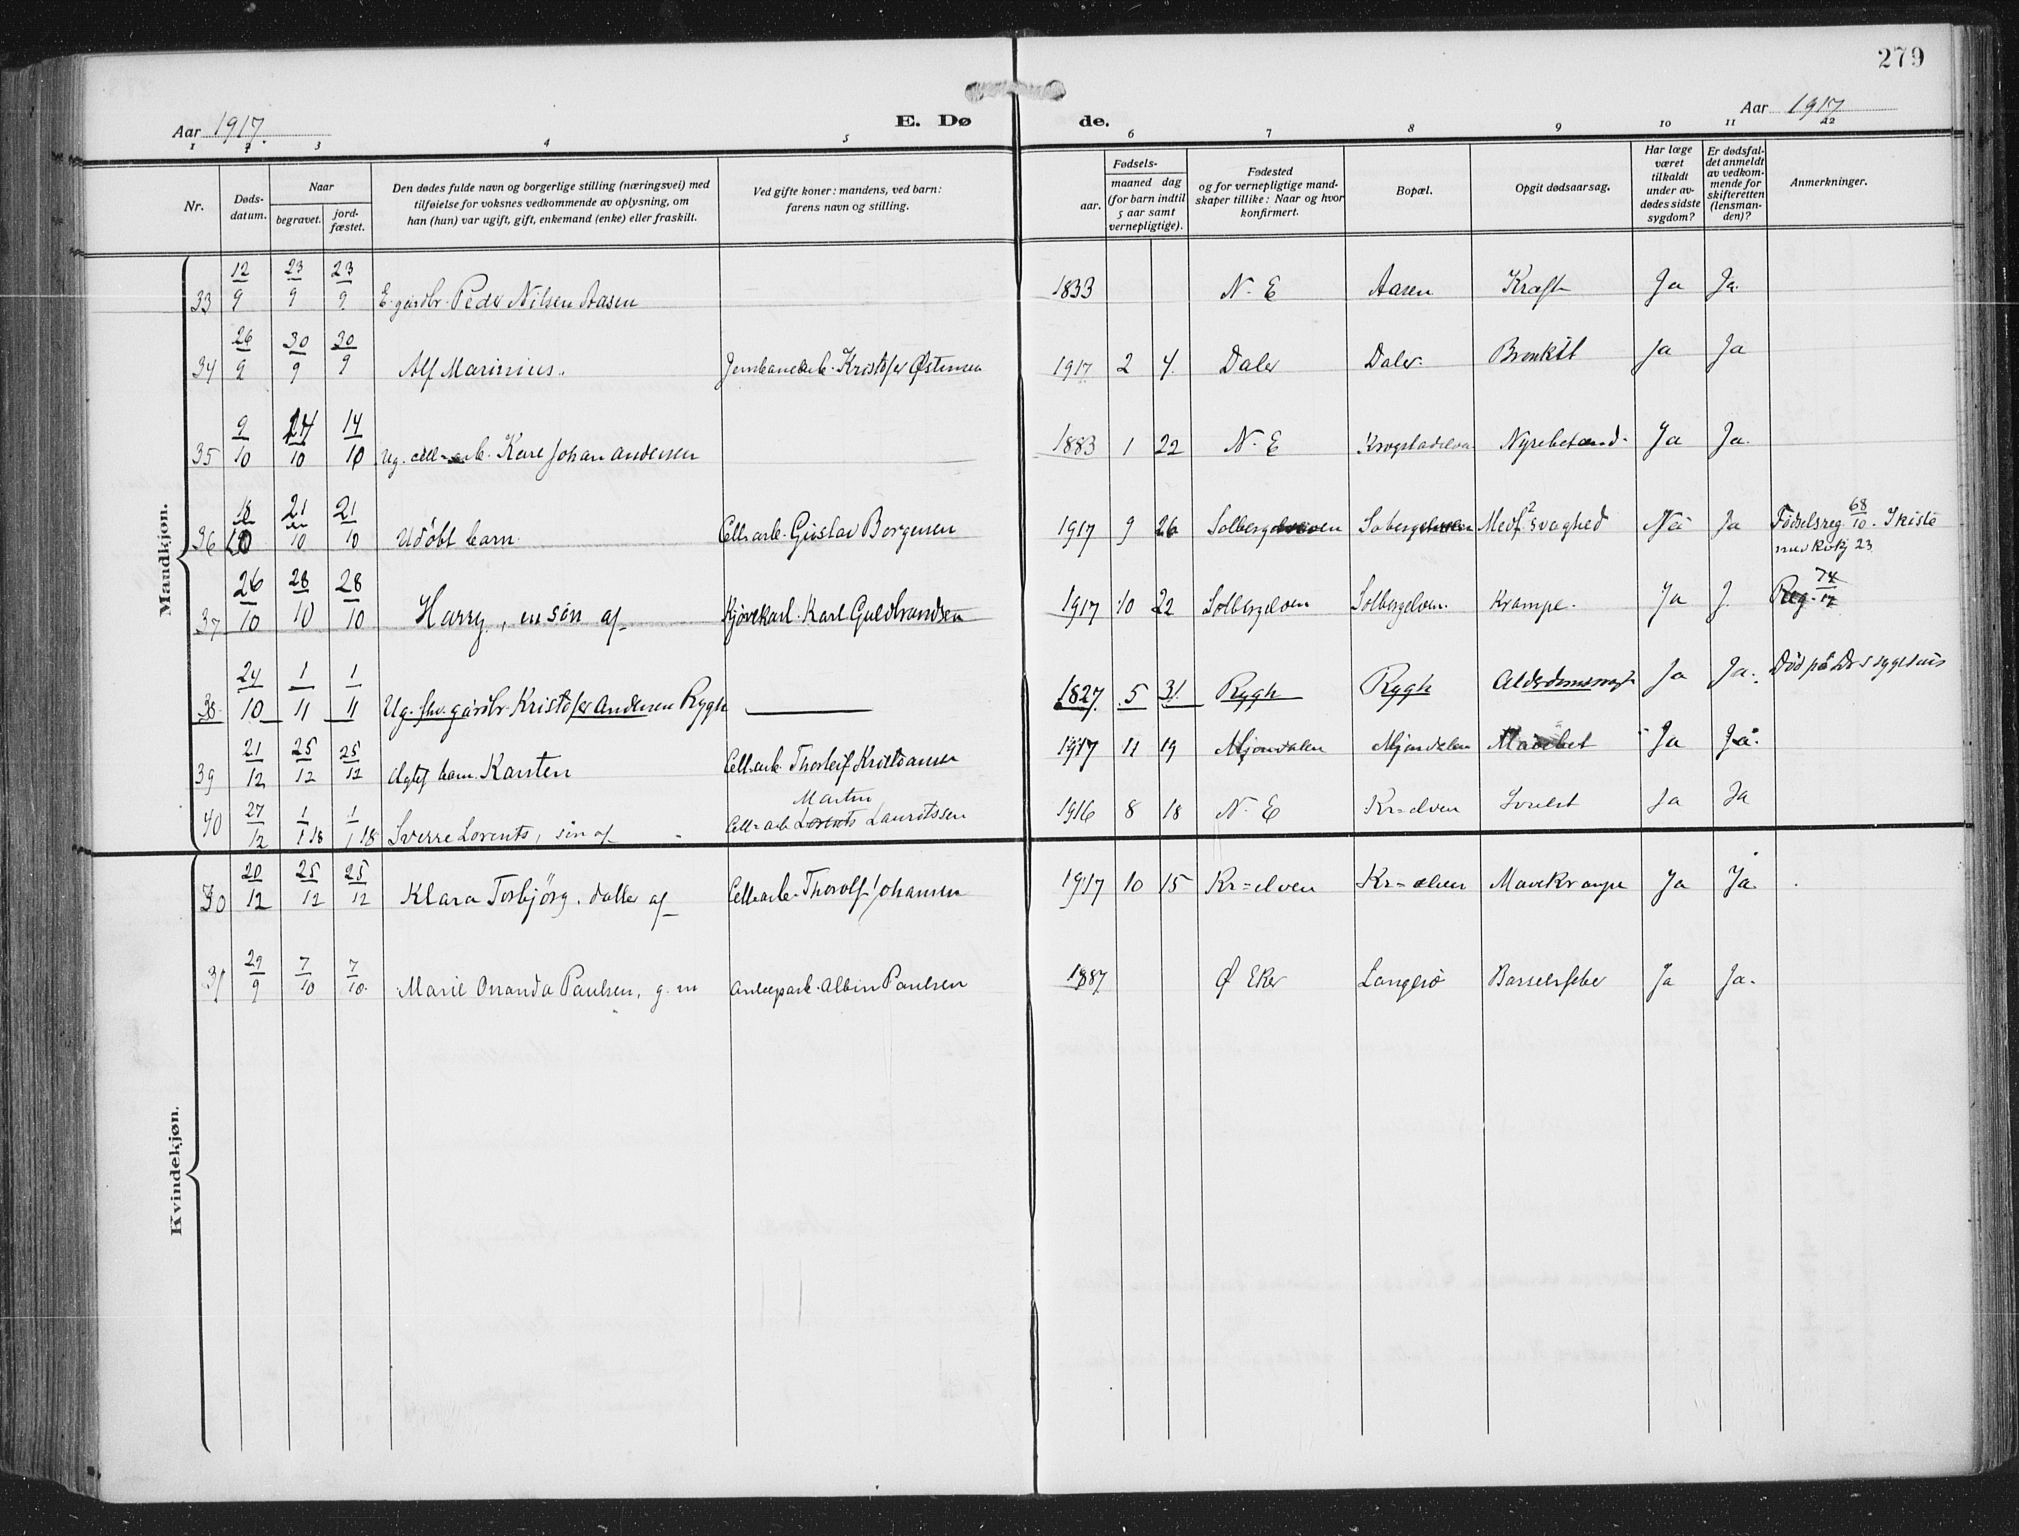 279
Aar 1917.
E. Dø de.
Aar 1917
1 2 3 4 5 6 7 8 9 10 11 12
Nr.
Døds-
datum.
Naar
begravet.
jord-
fæstet.
Den dødes fulde navn og borgerlige stilling (næringsvei) med
tilføielse for voksnes vedkommende av oplysning, om
han (hun) var ugift, gift, enkemand (enke) eller fraskilt.
Ved gifte koner: mandens, ved barn:
farens navn og stilling.
Fødsels-
aar.
maaned dag
(for barn indtil
5 aar samt
vernepligtige).
Fødested
og for vernepligtige mand-
skaper tillike: Naar og hvor
konfirmert.
Bopæl.
Opgit dødsaarsag.
Har læge
været
tilkaldt
under av-
dødes sidste
sygdom?
Er dødsfal-
det anmeldt
av vedkom-
mende for
skifteretten
(lensman-
den)?
Anmerkninger.
Mandkjøn.
33 12/9 23/9 23/9 E. gårdbr. Peder Nilsen Aasen 1833 N. E Aasen Kræft Ja Ja.
34 26/9 30/9 30/9 Alf Marinius. Kristofer Østensen 1917 2 4. Daler Daler. Bronkit Ja Ja
35 9/10 14/10 14/10 Ug. cell-arb. Karl Johan Andersen 1883 1 22 N. E Krogstadelven Nyrebetænd. Ja Ja.
36 18/10 21/10 21/10 Udøbt barn. Cell=arb. Gustav Borgersen 1917 9 26 Solbergelven Solbergelven Medf. svaghed Nei Ja Fødselsreg 68/10. I kiste
med 23
37 26/10 28/10 28/10 Harry, en søn af Karl Guldbrandsen 1917 10 22 Solbergelven Solbergelven. Krampe. Ja J. Reg. 74/17
38 24/10 1/11 1/11 Ug. fhv. gårdbr. Kristofer Andersen Rygh 1827. 5 31. Rygh Rygh Alderdomssvagh Ja Ja. Død på Dr.s sygehus
39 21/12 25/12 25/12 barn Karsten Cell=arb. Thorleif Kristiansen 1917 11 19 Mjøndalen Mjøndalen Ja Ja.
40 27/12 1/1 18 1/1 18 Sverre Lorents, søn af Cell=arb Martin Lauritssen 1916 8 18 N. E Kr=elven Ja Ja
Kvindekjøn.
30 20/12 25/12 25/12 Klara Torbjörg. datter af Cell=arb. Thorolf Johansen 1917 10 15 Kr=elven Kr=elven Mavekrampe Ja Ja.
31 29/9 7/10 7/10. Marie Paulsen, g. m Albin Paulsen 1887 Ø Eker Langesö Barselfeber Ja Ja.